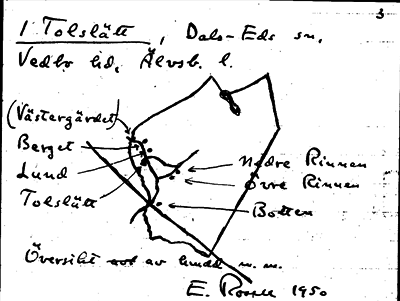 3
1 Tolslätt, Dals-Eds sn.
Vedbo hd, Älvsb. l.
(Västergärdet)
Berget
Lund
Tolslätt
Nedre Rinnen
Övre Rinnen
Botten
Översikt av m. m.
E. 1950